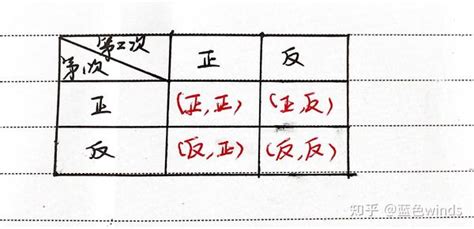 第2次 正 反
第1次
正 (正,正) (正,反)
反 (反,正) (反,反)
知乎 @蓝色winds